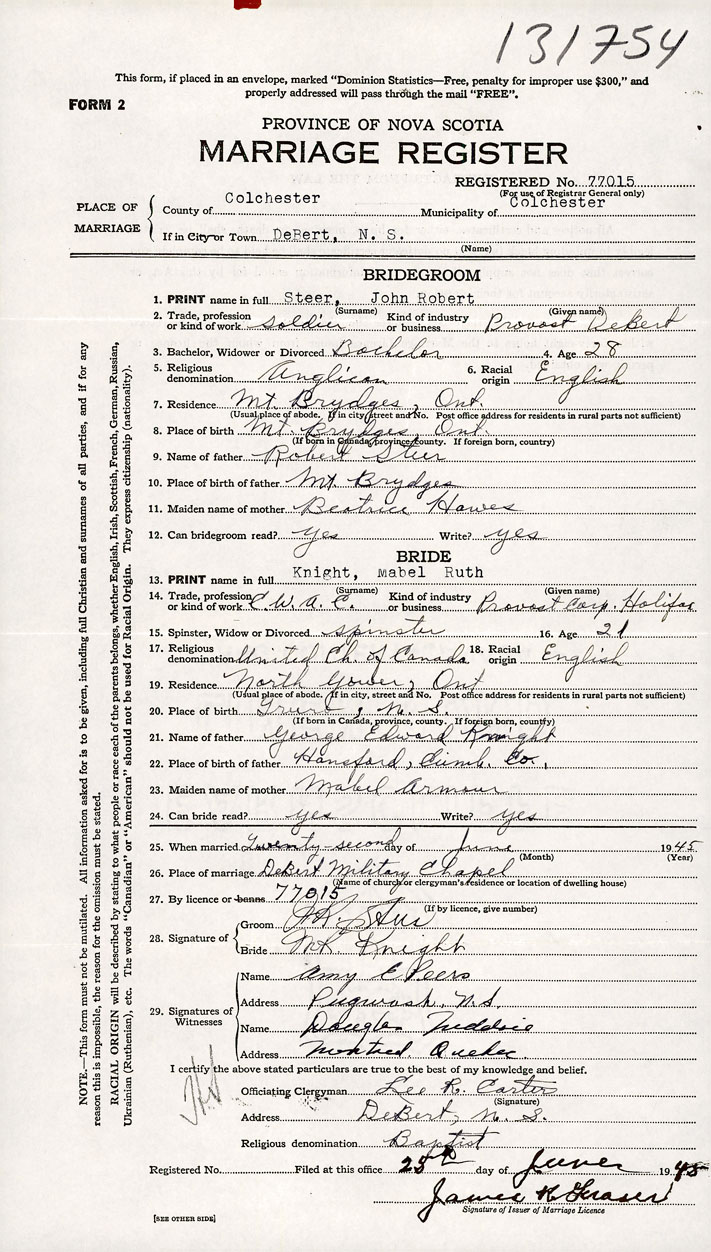 131754
This form, if placed in an envelope, marked "Dominion Statistics—Free, penalty for improper use $300," and
properly addressed will pass through the mail "FREE".
FORM 2
PROVINCE OF NOVA SCOTIA
MARRIAGE REGISTER
REGISTERED No. 77015
(For use of Registrar General only)
PLACE OF MARRIAGE
County of Colchester Municipality of Colchester
If in City or Town DeBert, N. S.
(Name)
BRIDEGROOM
1. PRINT name in full Steer, John Robert
(Surname) (Given name)
2. Trade, profession or kind of work soldier Kind of industry or business Provost DeBert
3. Bachelor, Widower or Divorced Bachelor 4. Age 28
5. Religious denomination Anglican 6. Racial origin English
7. Residence Mt. Brydges, Ont.
(Usual place of abode. If in city, street and No. Post office address for residents in rural parts not sufficient)
8. Place of birth Mt. Brydges, Ont.
(If born in Canada, province, county. If foreign born, country)
9. Name of father Robert Steer
10. Place of birth of father Mt Brydges
11. Maiden name of mother Beatrice Hawes
12. Can bridegroom read? yes Write? yes
BRIDE
13. PRINT name in full Knight, Mabel Ruth
(Surname) (Given name)
14. Trade, profession or kind of work C.W.A.C. Kind of industry or business Provost Corp. Halifax
15. Spinster, Widow or Divorced spinster 16. Age 21
17. Religious denomination United Ch. of Canada 18. Racial origin English
19. Residence North Gower, Ont
(Usual place of abode. If in city, street and No. Post office address for residents in rural parts not sufficient)
20. Place of birth Truro, N. S.
(If born in Canada, province, county. If foreign born, country)
21. Name of father George Edward Knight
22. Place of birth of father Hansford, Cumb. Co.
23. Maiden name of mother Mabel Armour
24. Can bride read? yes Write? yes
25. When married Twenty-second day of June 1945
(Month) (Year)
26. Place of marriage DeBert Military Chapel
(Name of church or clergyman's residence or location of dwelling house)
27. By licence or banns 77015
(If by licence, give number)
28. Signature of
Groom
Bride M.R. Knight
29. Signatures of Witnesses
Name Amy E Peers
Address Pugwash, N.S.
Name Douglas
Address Montreal, Quebec.
I certify the above stated particulars are true to the best of my knowledge and belief.
Officiating Clergyman Lee R. Carter
(Signature)
Address DeBert, N. S.
Religious denomination Baptist
Registered No. Filed at this office 25th day of June 1945
James K Fraser
Signature of Issuer of Marriage Licence
[SEE OTHER SIDE]
NOTE.—This form must not be mutilated. All information asked for is to be given, including full Christian and surnames of all parties, and if for any
reason this is impossible, the reason for the omission must be stated.
RACIAL ORIGIN will be described by stating to what people or race each of the parents belongs, whether English, Irish, Scottish, French, German, Russian,
Ukrainian (Ruthenian), etc. The words "Canadian" or "American" should not be used for Racial Origin. They express citizenship (nationality).